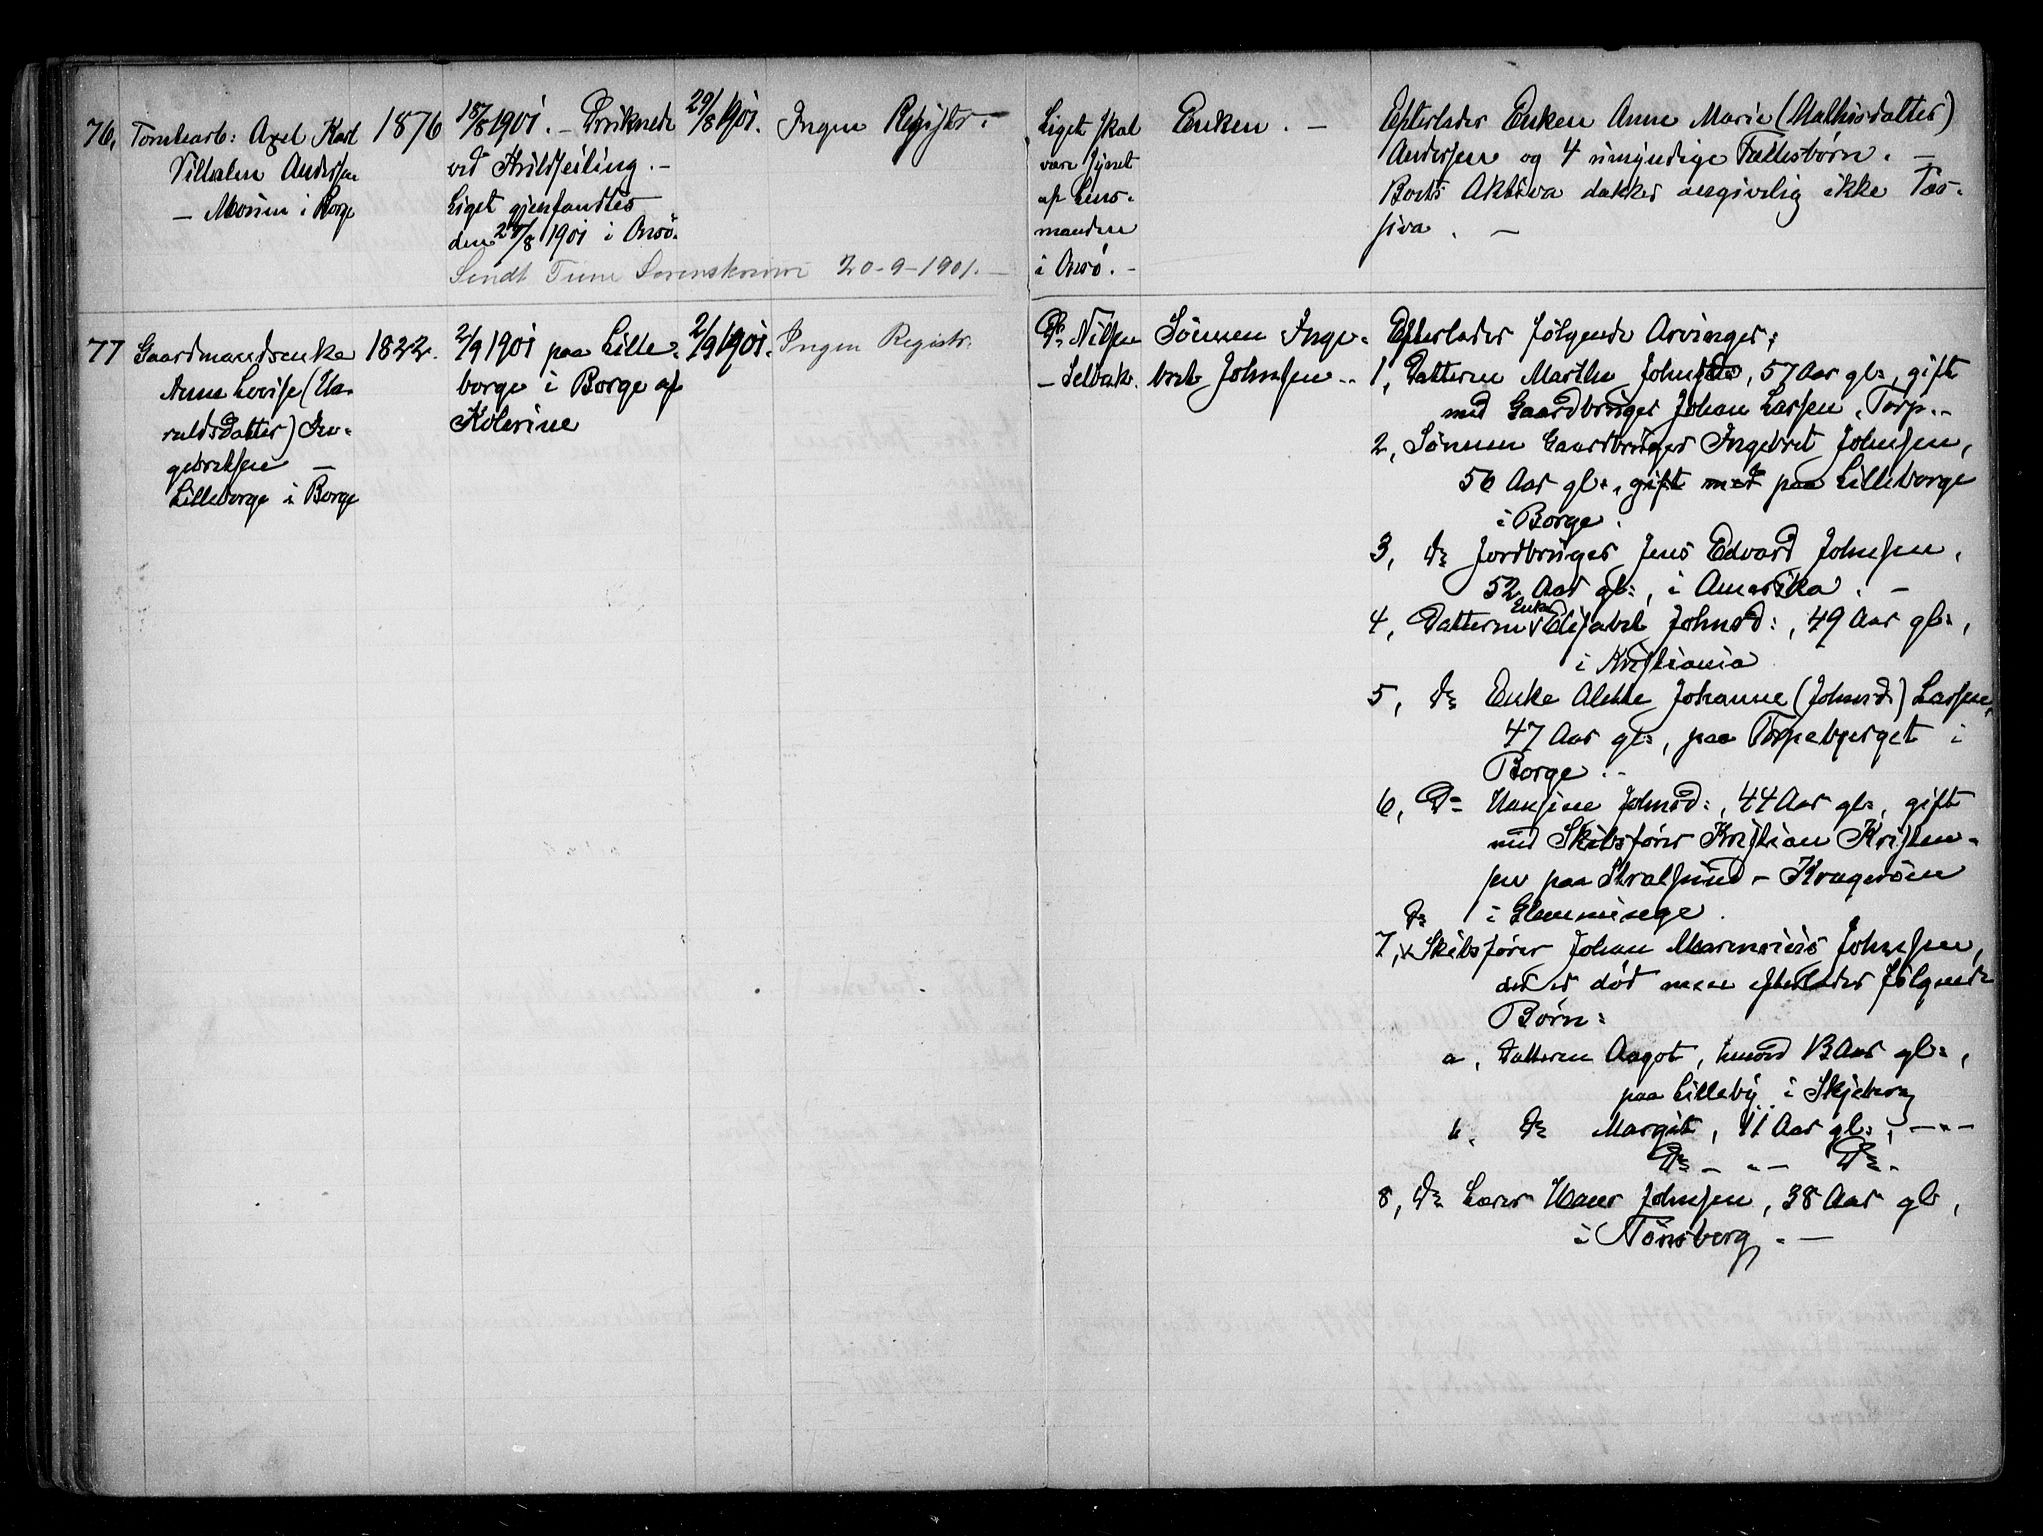 76, Tomtearb: Axel Karl
Vilhelm Andersen
— Moum i Borge
1876
18/8 1901. — Druknede
ved Hvildseiling. —
Liget gjenfandtes
den 27/8 1901 i Onsö.
Sendt Tune Sorenskriver 20-9-1901. —
29/8 1901.
Ingen Registr. —
Liget skal
være synet
af Lens-
manden
i Onsö. —
Enken. —
Efterlader Enken Anne Marie (Mathisdatter)
Andersen og 4 umyndige Fællesbørn. —
Boets Aktiva dækker angivelig ikke Pas-
siva. —
77 Gaardmandsenke
Anne Lovise (Ha-
raldsdatter) In-
gebretsen —
Lilleborge i Borge
1822.
2/9 1901 paa Lille-
borge i Borge af
Kolerine
2/9 1901.
Ingen Registr.
Dr. Nilsen
— Selbak.
Sönnen Inge-
bret Johnsen. —
Efterlader følgende Arvinger:
1, Datteren Marthe Johnsd:, 57 Aar gl:, gift
med Gaardbruger Johan Larsen, Torp. —
2, Sönnen Gaardbruger Ingebret Johnsen,
56 Aar gl:, gift med paa Lilleborge
i Borge.
3, Do Jordbruger Jens Edvard Johnsen,
52 Aar gl:, i Amerika. —
Enke
4, Datteren v Elisabet Johnsd:, 49 Aar gl:,
i Kristiania
5, Do Enke Alette Johanne (Johnsd:) Larsen,
47 Aar gl:, paa Torpebjerget i
Borge. —
6, Do Hansine Johnsd:, 44 Aar gl:, gift
med Skibsfører Kristian Kristen-
sen paa Stralsund — Kragerøen
Do i Glemminge.
7, v Skibsfører Johan Marenius Johnsen,
der er död men efterlader følgende
Børn:
a, Datteren Aagot, 13 Aar gl:,
paa Lilleby i Skjeberg
b, Do Margit, 11 Aar gl:, — " —
Do — " — Do —
8, Do Lærer Hans Johnsen, 38 Aar gl,
i Tönsberg. —